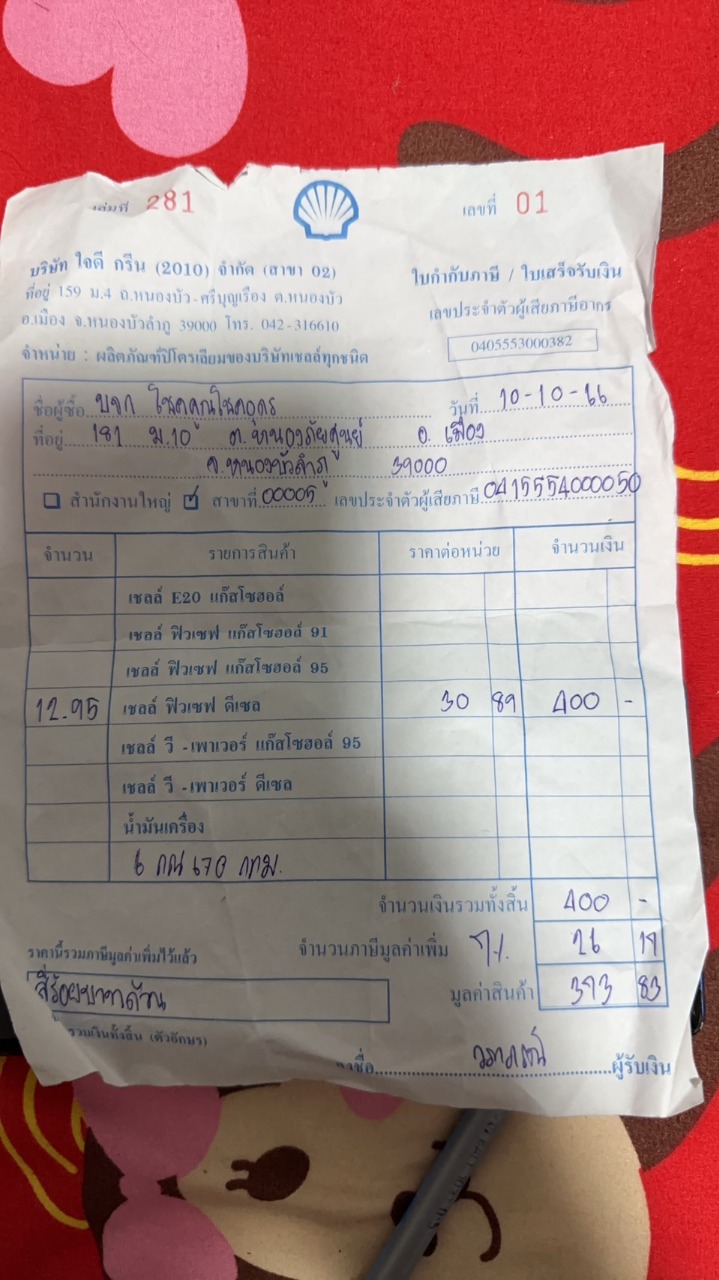 เล่มที่ 281
เลขที่ 01
บริษัท ใจดี กรีน (2010) จำกัด (สาขา 02)
ที่อยู่ 159 ม.4 ถ.หนองบัว-ศรีบุญเรือง ต.หนองบัว
อ.เมือง จ.หนองบัวลำภู 39000 โทร. 042-316610
จำหน่าย : ผลิตภัณฑ์ปิโตรเลียมของบริษัทเชลล์ทุกชนิด
ใบกำกับภาษี / ใบเสร็จรับเงิน
เลขประจำตัวผู้เสียภาษีอากร
0405553000382
ชื่อผู้ซื้อ บจก โชคคูณโชคอุดร วันที่ 10-10-66
ที่อยู่ 181 ม.10 ต.หนองภัยศูนย์ อ.เมือง
จ.หนองบัวลำภู 39000
สำนักงานใหญ่ สาขาที่ 00005 เลขประจำตัวผู้เสียภาษี 0415554000050
จำนวน รายการสินค้า ราคาต่อหน่วย จำนวนเงิน
เชลล์ E20 แก๊สโซฮอล์
เชลล์ ฟิวเซฟ แก๊สโซฮอล์ 91
เชลล์ ฟิวเซฟ แก๊สโซฮอล์ 95
12.95 เชลล์ ฟิวเซฟ ดีเซล 30 89 400 -
เชลล์ วี -เพาเวอร์ แก๊สโซฮอล์ 95
เชลล์ วี -เพาเวอร์ ดีเซล
น้ำมันเครื่อง
6 กณ 670 กทม.
จำนวนเงินรวมทั้งสิ้น 400 -
ราคานี้รวมภาษีมูลค่าเพิ่มไว้แล้ว จำนวนภาษีมูลค่าเพิ่ม 7% 26 17
สี่ร้อยบาทถ้วน มูลค่าสินค้า 373 83
รวมเงินทั้งสิ้น (ตัวอักษร)
ลงชื่อ วราภรณ์ ผู้รับเงิน